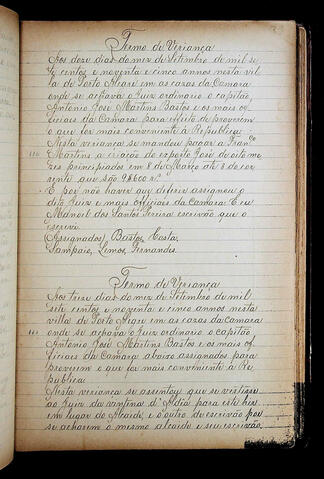 Termo de Veriança
Aos doze dias do mez de Setembro de mil se
te centos e noventa e cinco annos nesta vil
la de Porto Alegre em as casas da Camara
onde se achava o Juiz ordinario o capitão
Antonio José Martins Bastos e os mais of
ficiaes da Camara para effeito de proverem
o que for mais conveniente á Republica
Nesta veriança se mandou pagar a Fran.co
Martins a criação do exposto José de oito me
zes principiados em 8 de Março até 8 do cor
rente que são
E por não haver que deferir assignou o
dito Juiz e mais officiaes da Camara: E eu
Manoel dos Santos Pereira escrivão que o
escrevi
(Assignados) Bastos, Costa,
Sampaio, Lemos, Fernandes.
Termo de Veriança
Aos treze dias do mez de Setembro de mil
sete centos e noventa e cinco annos nesta
villa de Porto Alegre em as casas da camara
onde se achava o Juiz ordinario o capitão
Antonio José Martins Bastos e os mais of
ficiaes da Camara abaixo assignados para
proverem o que for mais conveniente á Re
publica
Nesta veriança se assentou que se
ao Juiz da vintena d'Aldêa para este
em lugar do Alcaide, e o outro de escrivão por
se acharem o mesmo alcaide e seu escrivão